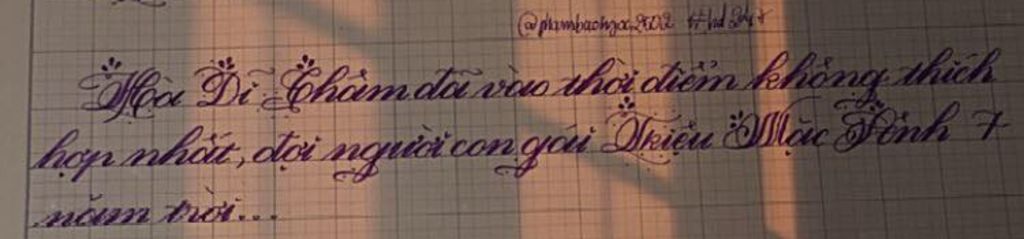 @phambaongoc2002 #hd247
Hà Dĩ Thâm đã vào thời điểm không thích
hợp nhất, đợi người con gái Triệu Mặc Sênh 7
năm trời...